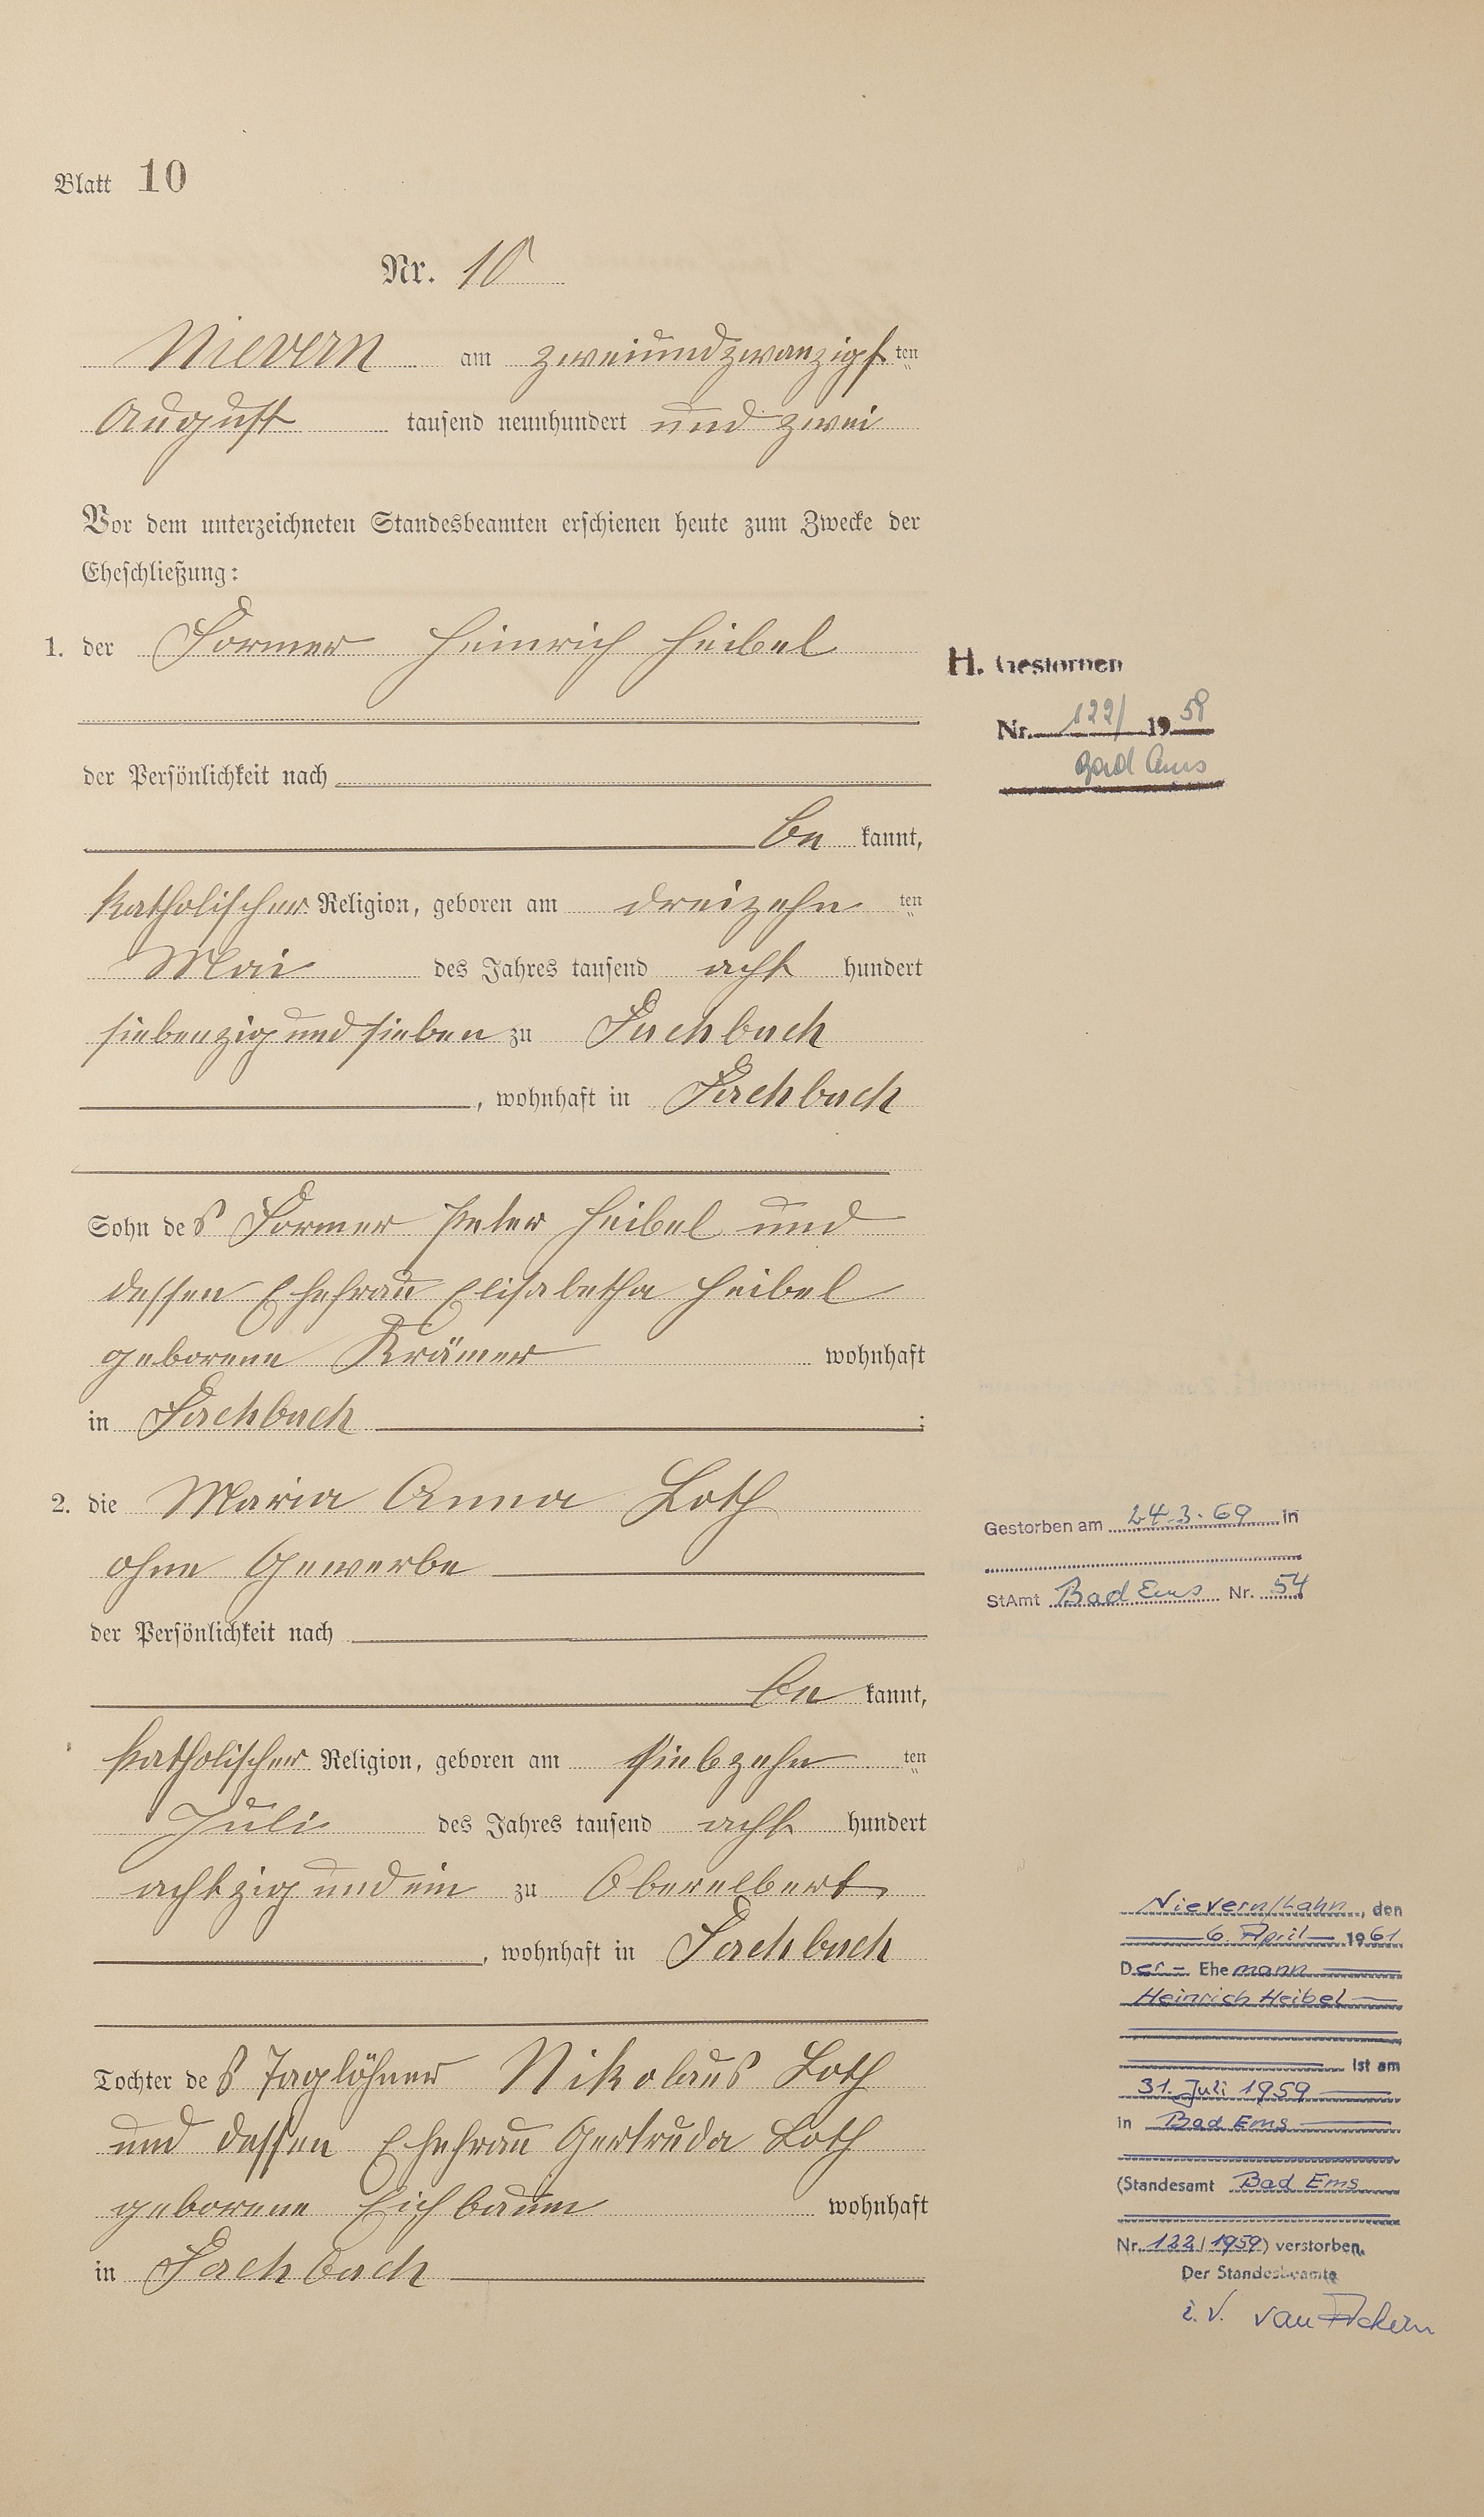 Blatt 10
Nr. 10
Nievern am zweiundzwanzigsten
August tausend neunhundert und zwei
Vor dem unterzeichneten Standesbeamten erschienen heute zum Zwecke der
Eheschließung:
1. der Former Heinrich Heibel
der Persönlichkeit nach
be kannt,
katholischer Religion, geboren am dreizehn ten
Mai des Jahres tausend acht hundert
siebenzig und sieben zu Fachbach
, wohnhaft in Fachbach
Sohn des Former Peter Heibel und
dessen Ehefrau Elisabetha Heibel
geborene Krämer wohnhaft
in Fachbach ;
2. die Maria Anna Loth
ohne Gewerbe
der Persönlichkeit nach
be kannt,
katholischer Religion, geboren am siebzehn ten
Juli des Jahres tausend acht hundert
achtzig und ein zu Oberelbert
, wohnhaft in Fachbach
Tochter des Taglöhner Nikolaus Loth
und dessen Ehefrau Gertruda Loth
geborene Eichbaum wohnhaft
in Fachbach
H. Gestorben
Nr. 122/ 1959
Bad Ems
Gestorben am 24.3.69 in
StAmt Bad Ems Nr. 54
Nievern/Lahn, den
6. April 1961
Der - Ehemann
Heinrich Heibel
ist am
31. Juli 1959
in Bad Ems
(Standesamt Bad Ems
Nr. 122/1959) verstorben.
Der Standesbeamte
i.V.